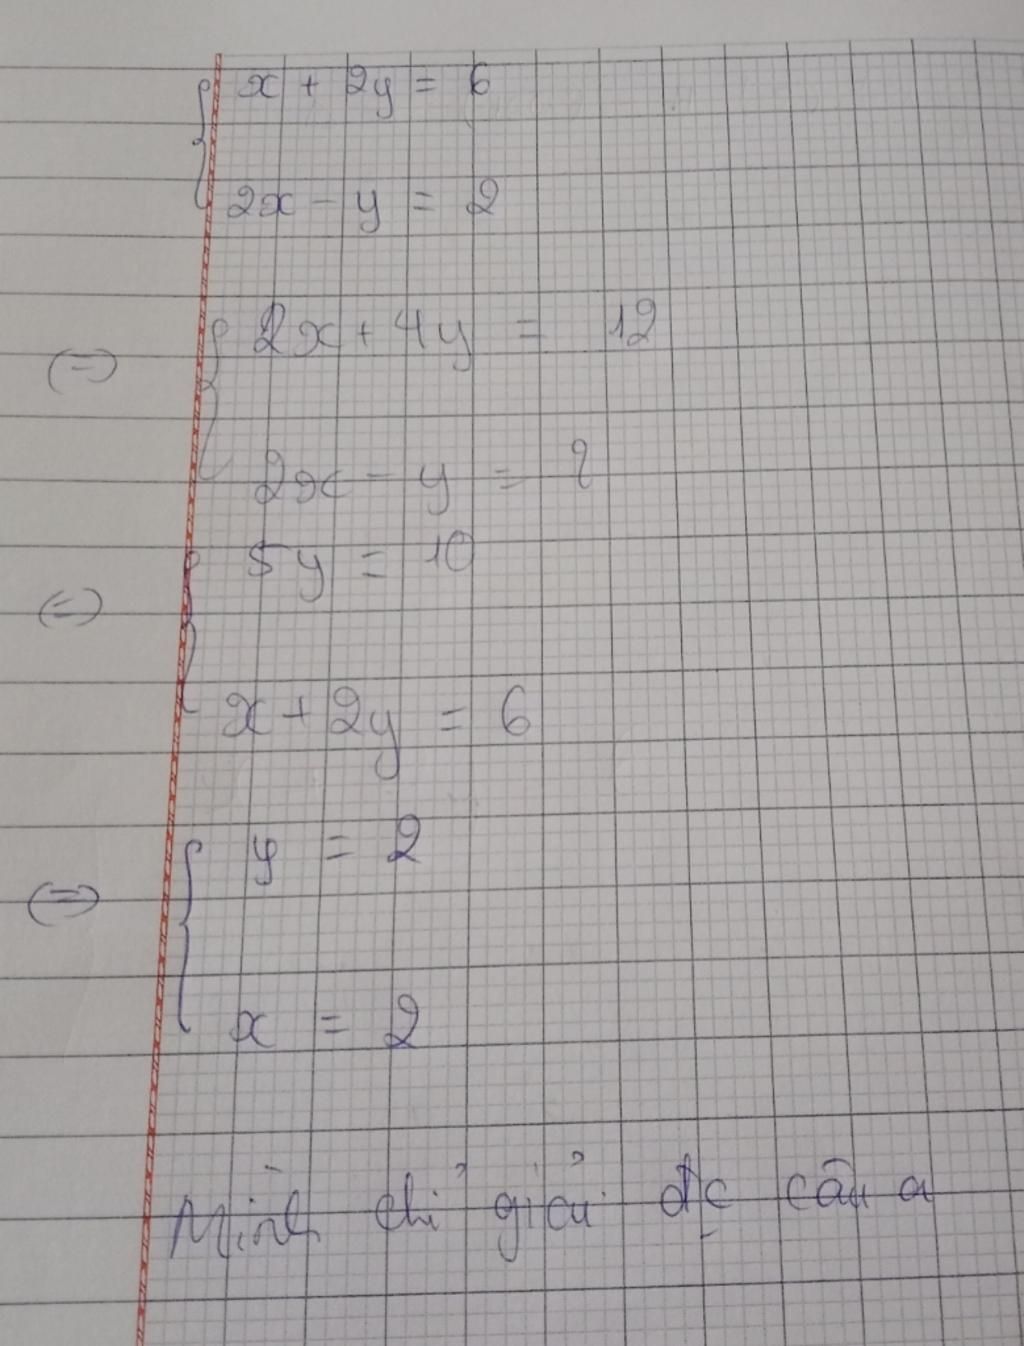 x + 2y = 6
2x - y = 2
(=) 2x + 4y = 12
2x - y = 2
(=) 5y = 10
x + 2y = 6
(=) y = 2
x = 2
Mình chỉ giải đc câu a